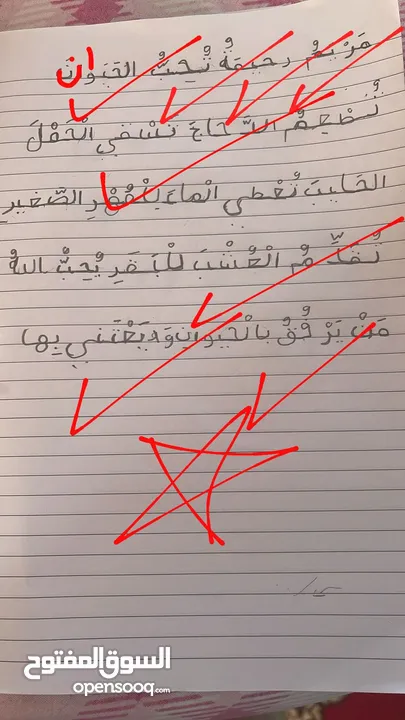 مَرْيَمُ رَحيمَةٌ تُحِبُّ الحَيَوانَ ان
تُطْعِمُ الدَّجاجَ تَسْقي الْحَمَلَ
الحَليبَ تُعْطي الْماءَ لِلْمُهْرِ الصَّغيرِ
تُقَدِّمُ الْعُشْبَ لِلْبَقَرِ يُحِبُّ اللهُ
مَنْ يَرْفُقُ بِالْحَيَوانِ وَيَعْتَني بِها
السوق المفتوح
opensooq.com